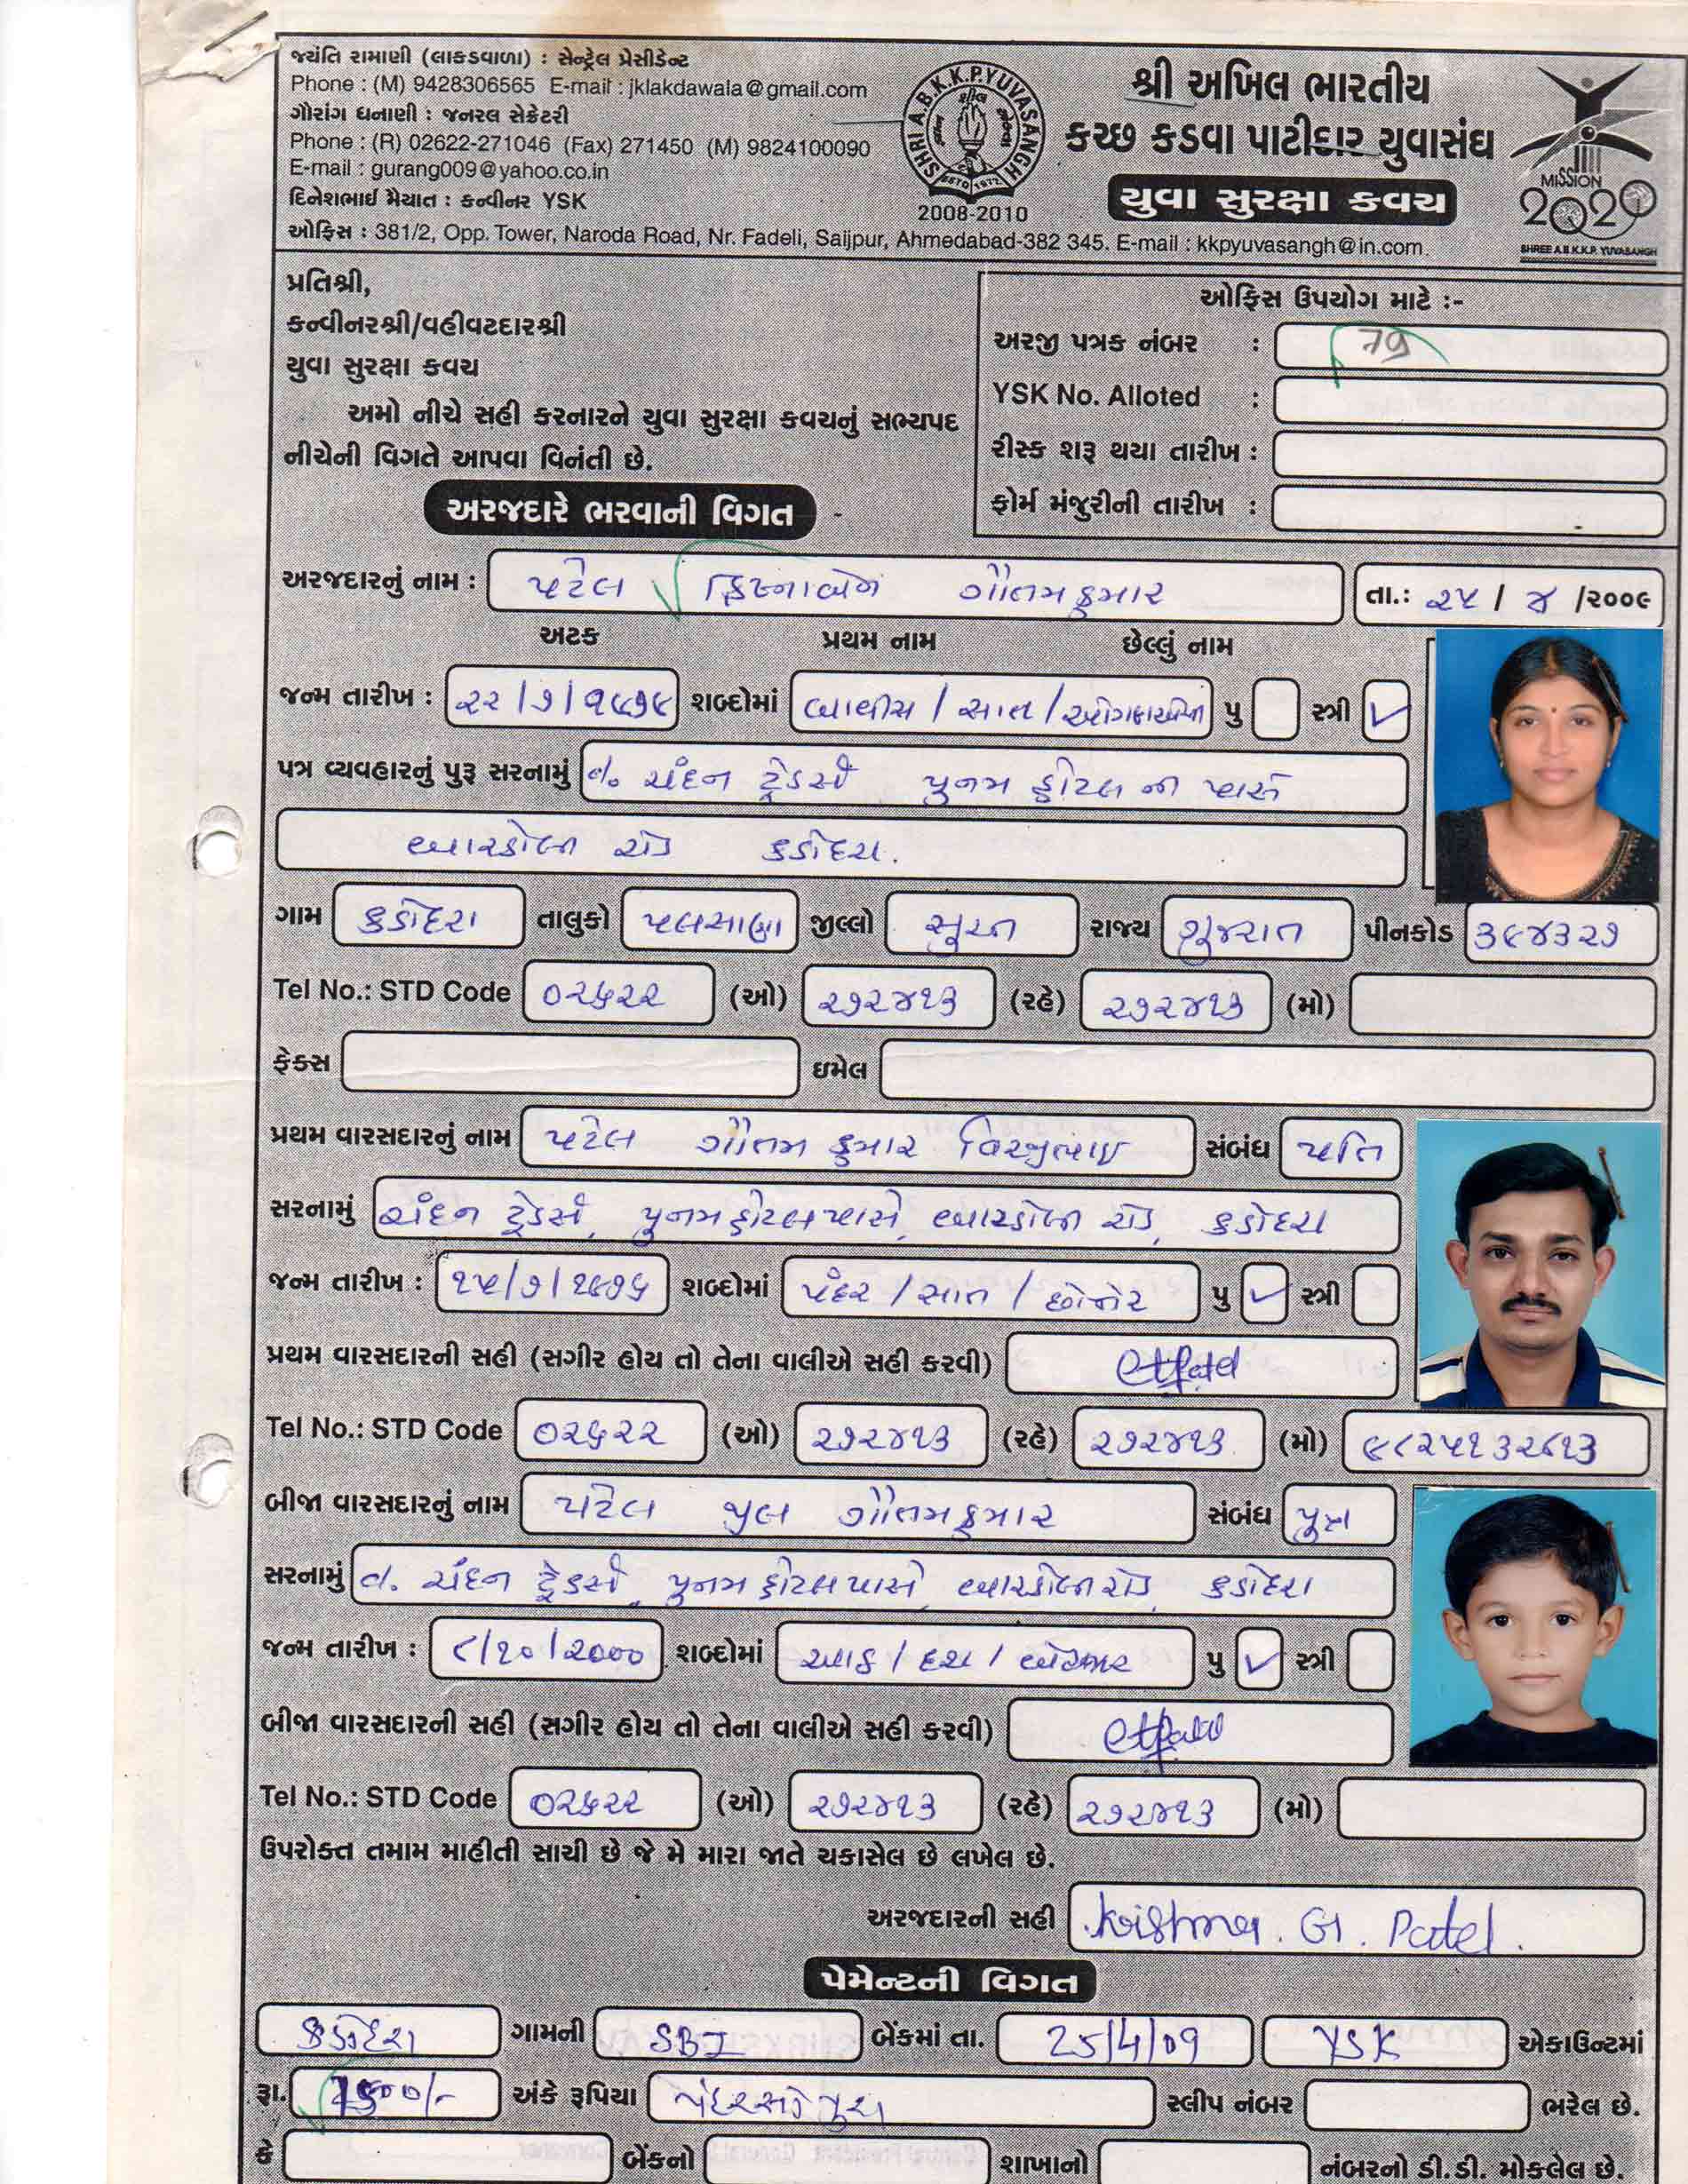 જયંતિ રામાણી (લાકડાવાળા) : સેન્ટ્રેલ પ્રેસીડેન્ટ
Phone : (M) 9428306565 E-mail : jklakdawala@gmail.com
ગૌરાંગ ધનાણી : જનરલ સેક્રેટરી
Phone : (R) 02622-271046 (Fax) 271450 (M) 9824100090
E-mail : gurang009@yahoo.co.in
દિનેશભાઈ મૈયાત : કન્વીનર YSK
ઓફિસ : 381/2, Opp. Tower, Naroda Road, Nr. Fadeli, Saijpur, Ahmedabad-382 345. E-mail : kkpyuvasangh@in.com.
SHRI A.B.K.K.P. YUVASANGH
ESTD 1977
2008-2010
શ્રી અખિલ ભારતીય
કચ્છ કડવા પાટીદાર યુવાસંઘ
યુવા સુરક્ષા કવચ
MISSION
2020
SHREE A.B.K.K.P. YUVASANGH
પ્રતિશ્રી,
કન્વીનરશ્રી/વહીવટદારશ્રી
યુવા સુરક્ષા કવચ
અમો નીચે સહી કરનારને યુવા સુરક્ષા કવચનું સભ્યપદ
નીચેની વિગતે આપવા વિનંતી છે.
ઓફિસ ઉપયોગ માટે :-
અરજી પત્રક નંબર : 79
YSK No. Alloted :
રીસ્ક શરૂ થયા તારીખ :
ફોર્મ મંજુરીની તારીખ :
અરજદારે ભરવાની વિગત
અરજદારનું નામ : પટેલ ક્રિષ્નાબેન ગૌતમકુમાર તા.: ૨૫ / ૪ /૨૦૦૯
અટક પ્રથમ નામ છેલ્લું નામ
જન્મ તારીખ : ૨૨/૭/૧૯૭૯ શબ્દોમાં બાવીસ / સાત / પુ સ્ત્રી ✓
પત્ર વ્યવહારનું પુરૂ સરનામું ઠે. ચંદન ટ્રેડર્સ પુનમ હોટલ ની પાસે
બારડોલી રોડ કડોદરા.
ગામ કડોદરા તાલુકો પલસાણા જીલ્લો સુરત રાજ્ય ગુજરાત પીનકોડ ૩૯૪૩૨૭
Tel No.: STD Code ૦૨૬૨૨ (ઓ) ૨૭૨૪૧૩ (રહે) ૨૭૨૪૧૩ (મો)
ફેક્સ ઇમેલ
પ્રથમ વારસદારનું નામ પટેલ ગૌતમ કુમાર વિરજીભાઇ સંબંધ પતિ
સરનામું ચંદન ટ્રેડર્સ, પુનમ હોટલ પાસે, બારડોલી રોડ, કડોદરા
જન્મ તારીખ : ૧૫/૭/૧૯૭૬ શબ્દોમાં પંદર / સાત / છોતેર પુ ✓ સ્ત્રી
પ્રથમ વારસદારની સહી (સગીર હોય તો તેના વાલીએ સહી કરવી)
Tel No.: STD Code ૦૨૬૨૨ (ઓ) ૨૭૨૪૧૩ (રહે) ૨૭૨૪૧૩ (મો) ૯૮૨૫૧૩૨૮૧૩
બીજા વારસદારનું નામ પટેલ ગૌતમકુમાર સંબંધ પુત્ર
સરનામું ઠે. ચંદન ટ્રેડર્સ, પુનમ હોટલ પાસે, બારડોલી રોડ, કડોદરા
જન્મ તારીખ : ૮/૧૦/૨૦૦૦ શબ્દોમાં આઠ / દશ / બેહજાર પુ ✓ સ્ત્રી
બીજા વારસદારની સહી (સગીર હોય તો તેના વાલીએ સહી કરવી)
Tel No.: STD Code ૦૨૬૨૨ (ઓ) ૨૭૨૪૧૩ (રહે) ૨૭૨૪૧૩ (મો)
ઉપરોક્ત તમામ માહીતી સાચી છે જે મે મારા જાતે ચકાસેલ છે લખેલ છે.
અરજદારની સહી Krishna. G. Patel.
પેમેન્ટની વિગત
કડોદરા ગામની SBI બેંકમાં તા. 25/4/09 YSK એકાઉન્ટમાં
રૂા. 1500/- અંકે રૂપિયા પંદરસો પુરા સ્લીપ નંબર ભરેલ છે.
કે બેંકનો શાખાનો નંબરનો ડી.ડી. મોકલેલ છે.